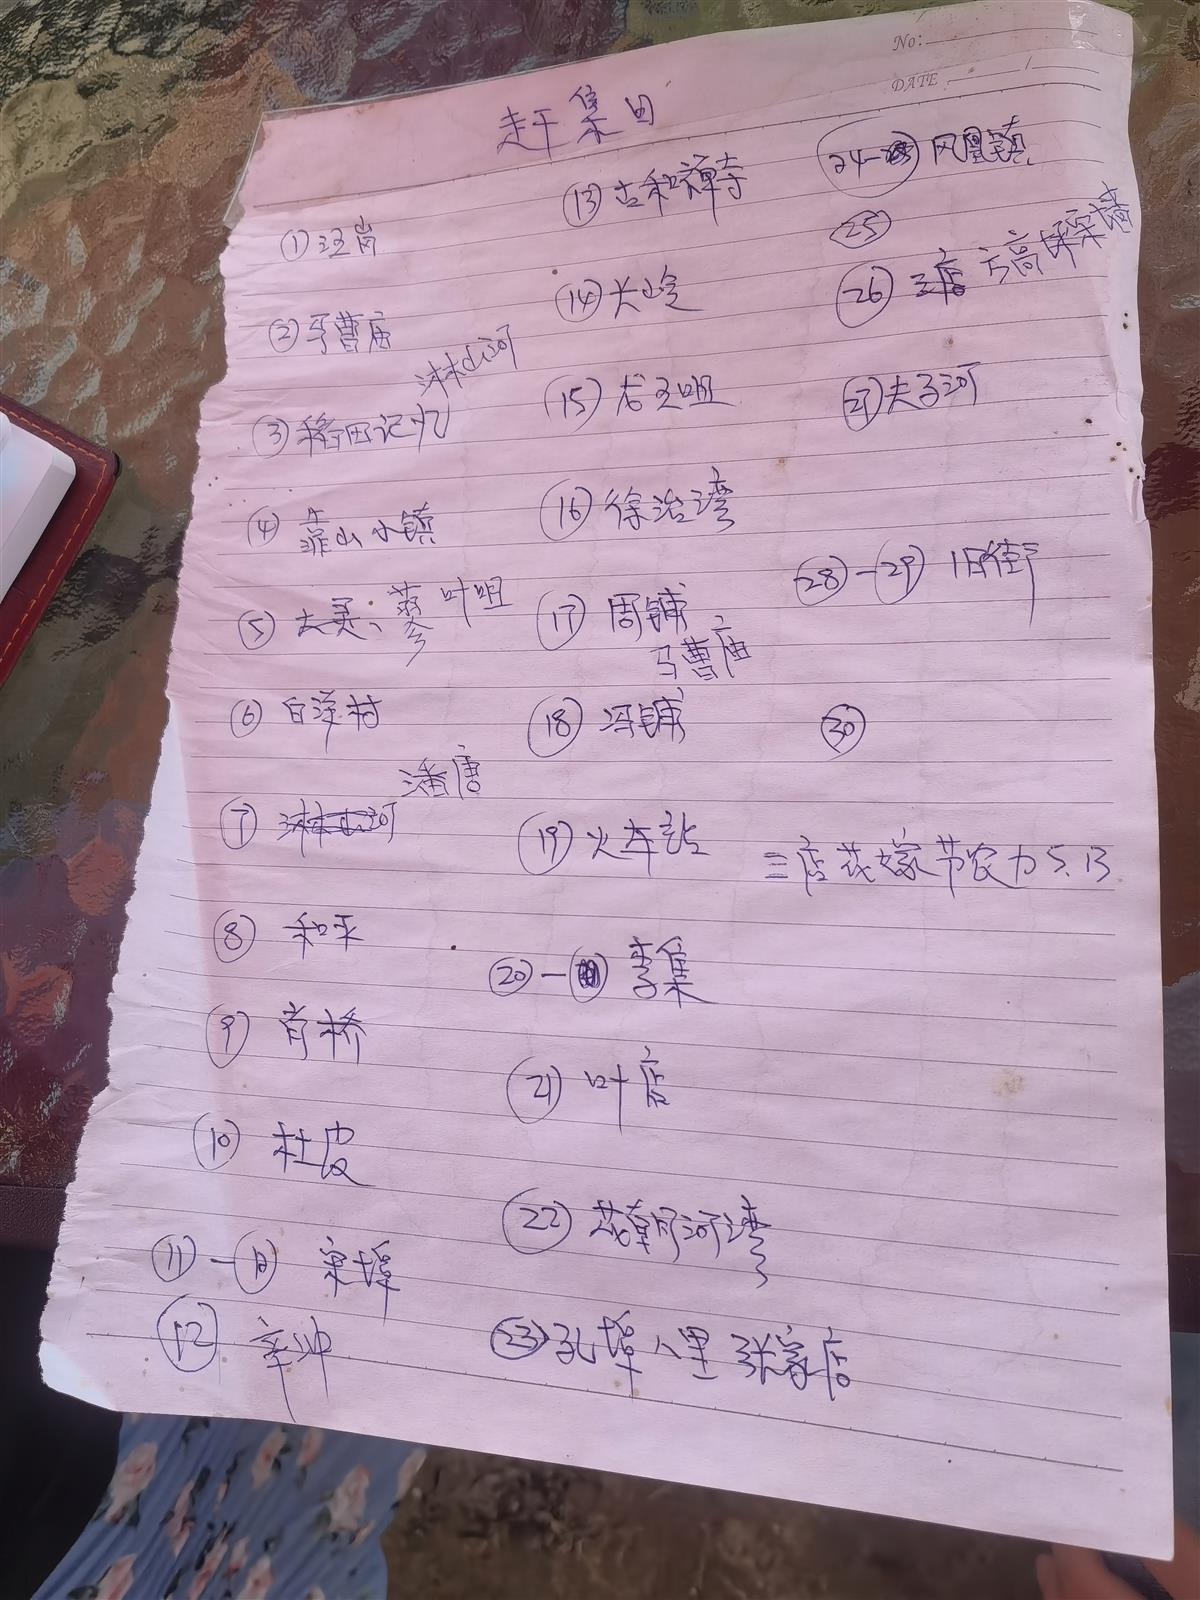 No:
DATE
赶集日
① 汪岗
② 马曹庙
淋山河
③ 稻田记忆
④ 靠山小镇
⑤ 大灵、蓼叶咀
⑥ 白洋村
潘唐
⑦ 淋山河
⑧ 和平
⑨ 肖桥
⑩ 杜皮
⑪— 宋埠
⑫ 辛冲
⑬ 古和禅寺
⑭ 大岭
⑮ 龙王咀
⑯ 徐治湾
⑰ 周铺
马曹庙
⑱ 冯铺
⑲ 火车站
⑳— 李集
㉑ 叶店
㉒ 花朝河湾
㉓ 孔埠 八里 张家店
24— 凤凰镇
㉕
㉖ 三店 方高坪 宋墙
㉗ 夫子河
㉘—㉙ 旧街
㉚
三店花嫁节农力5.13